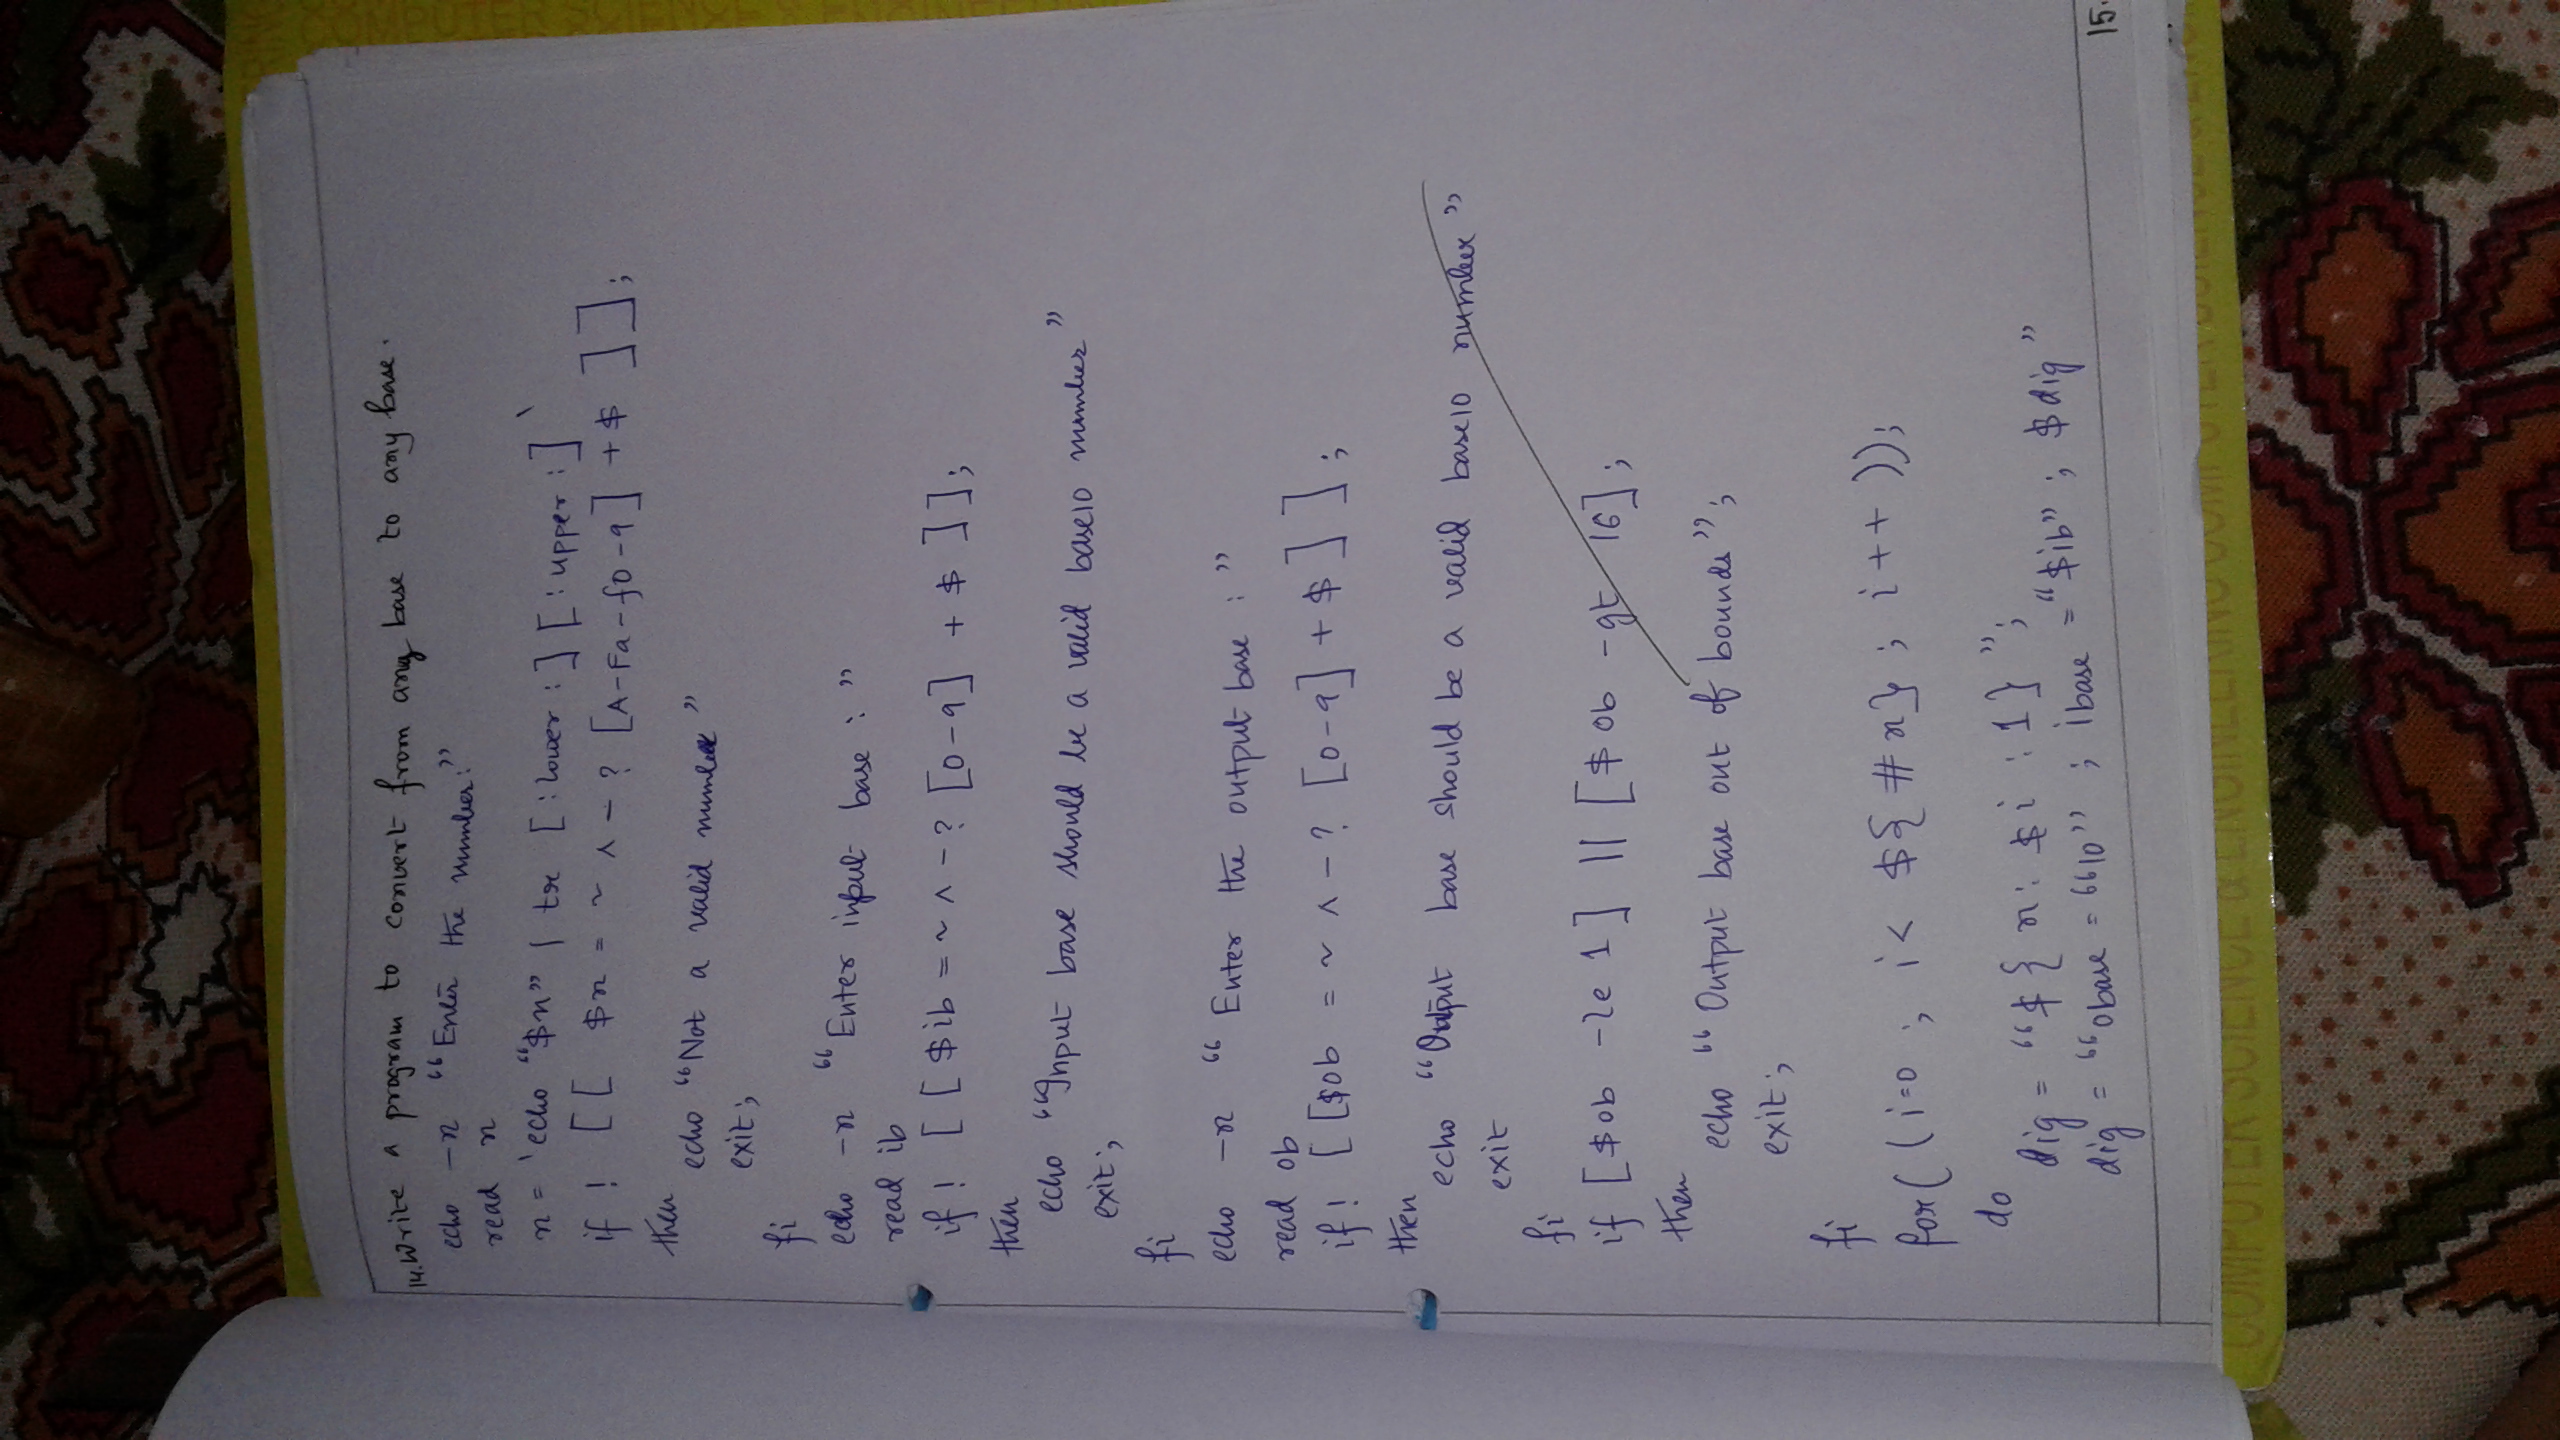 14. Write a program to convert from any base to any base.
echo -n "Enter the number:"
read n
n = `echo "$n" | tr [:lower:] [:upper:]`
if ! [[ $n =~ ^-?[A-Fa-f0-9]+$ ]];
then
echo "Not a valid number"
exit;
fi
echo -n "Enter input base : "
read ib
if ! [[ $ib =~ ^-?[0-9]+$ ]];
then
echo "Input base should be a valid base10 number"
exit;
fi
echo -n "Enter the output base : "
read ob
if ! [[ $ob =~ ^-?[0-9]+$ ]];
then
echo "Output base should be a valid base10 number"
exit
fi
if [$ob -le 1] || [$ob -gt 16];
then
echo "Output base out of bounds";
exit;
fi
for((i=0 ; i< ${#n} ; i++ ));
do
dig = "${n: $i :1}";
dig = "obase = "10" ; ibase = "$ib" ; $dig"
15.
COMPUTER SCIENCE & ENGINEERING COMPUTER SCIENCE &